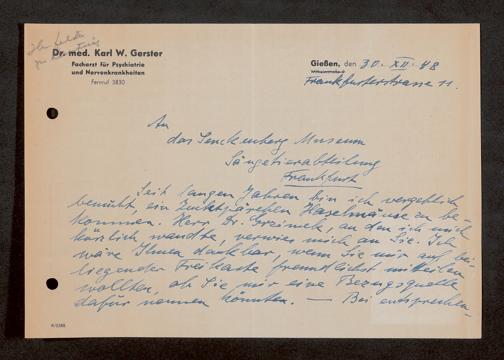 Dr. med. Karl W. Gerster
Facharzt für Psychiatrie
und Nervenkrankheiten
Fernruf 3830
Gießen, den 30. XII. 48
Frankfurterstrasse 11.
An
das Senckenberg Museum
Säugetierabteilung
Frankfurt
Seit langen Jahren bin ich vergeblich
bemüht, ein Zuchtpärchen Haselmäuse zu be-
kommen. Herr Dr. Grzimek, an den ich mich
kürzlich wandte, verwies mich an Sie. Ich
wäre Ihnen dankbar, wenn Sie mir auf bei-
liegender Freikarte freundlichst mitteilen
wollten, ob Sie mir eine Bezugsquelle
dafür nennen könnten. — Bei entsprechen-